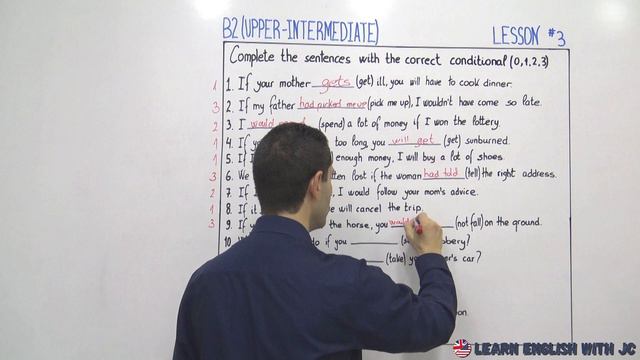 B2 (UPPER-INTERMEDIATE) LESSON #3
Complete the sentences with the correct conditional (0,1,2,3)
1 1. If your mother gets (get) ill, you will have to cook dinner.
3 2. If my father had picked me up (pick me up), I wouldn't have come so late.
2 3. I would (spend) a lot of money if I won the lottery.
1 4. If too long, you will get (get) sunburned.
1 5. If enough money, I will buy a lot of shoes.
3 6. We lost if the woman had told (tell) the right address.
2 7. If I, I would follow your mom's advice.
1 8. If it we will cancel the trip.
3 9. If the horse, you would (not fall) on the ground.
10. do if you
(take) your car?
LEARN ENGLISH WITH JC